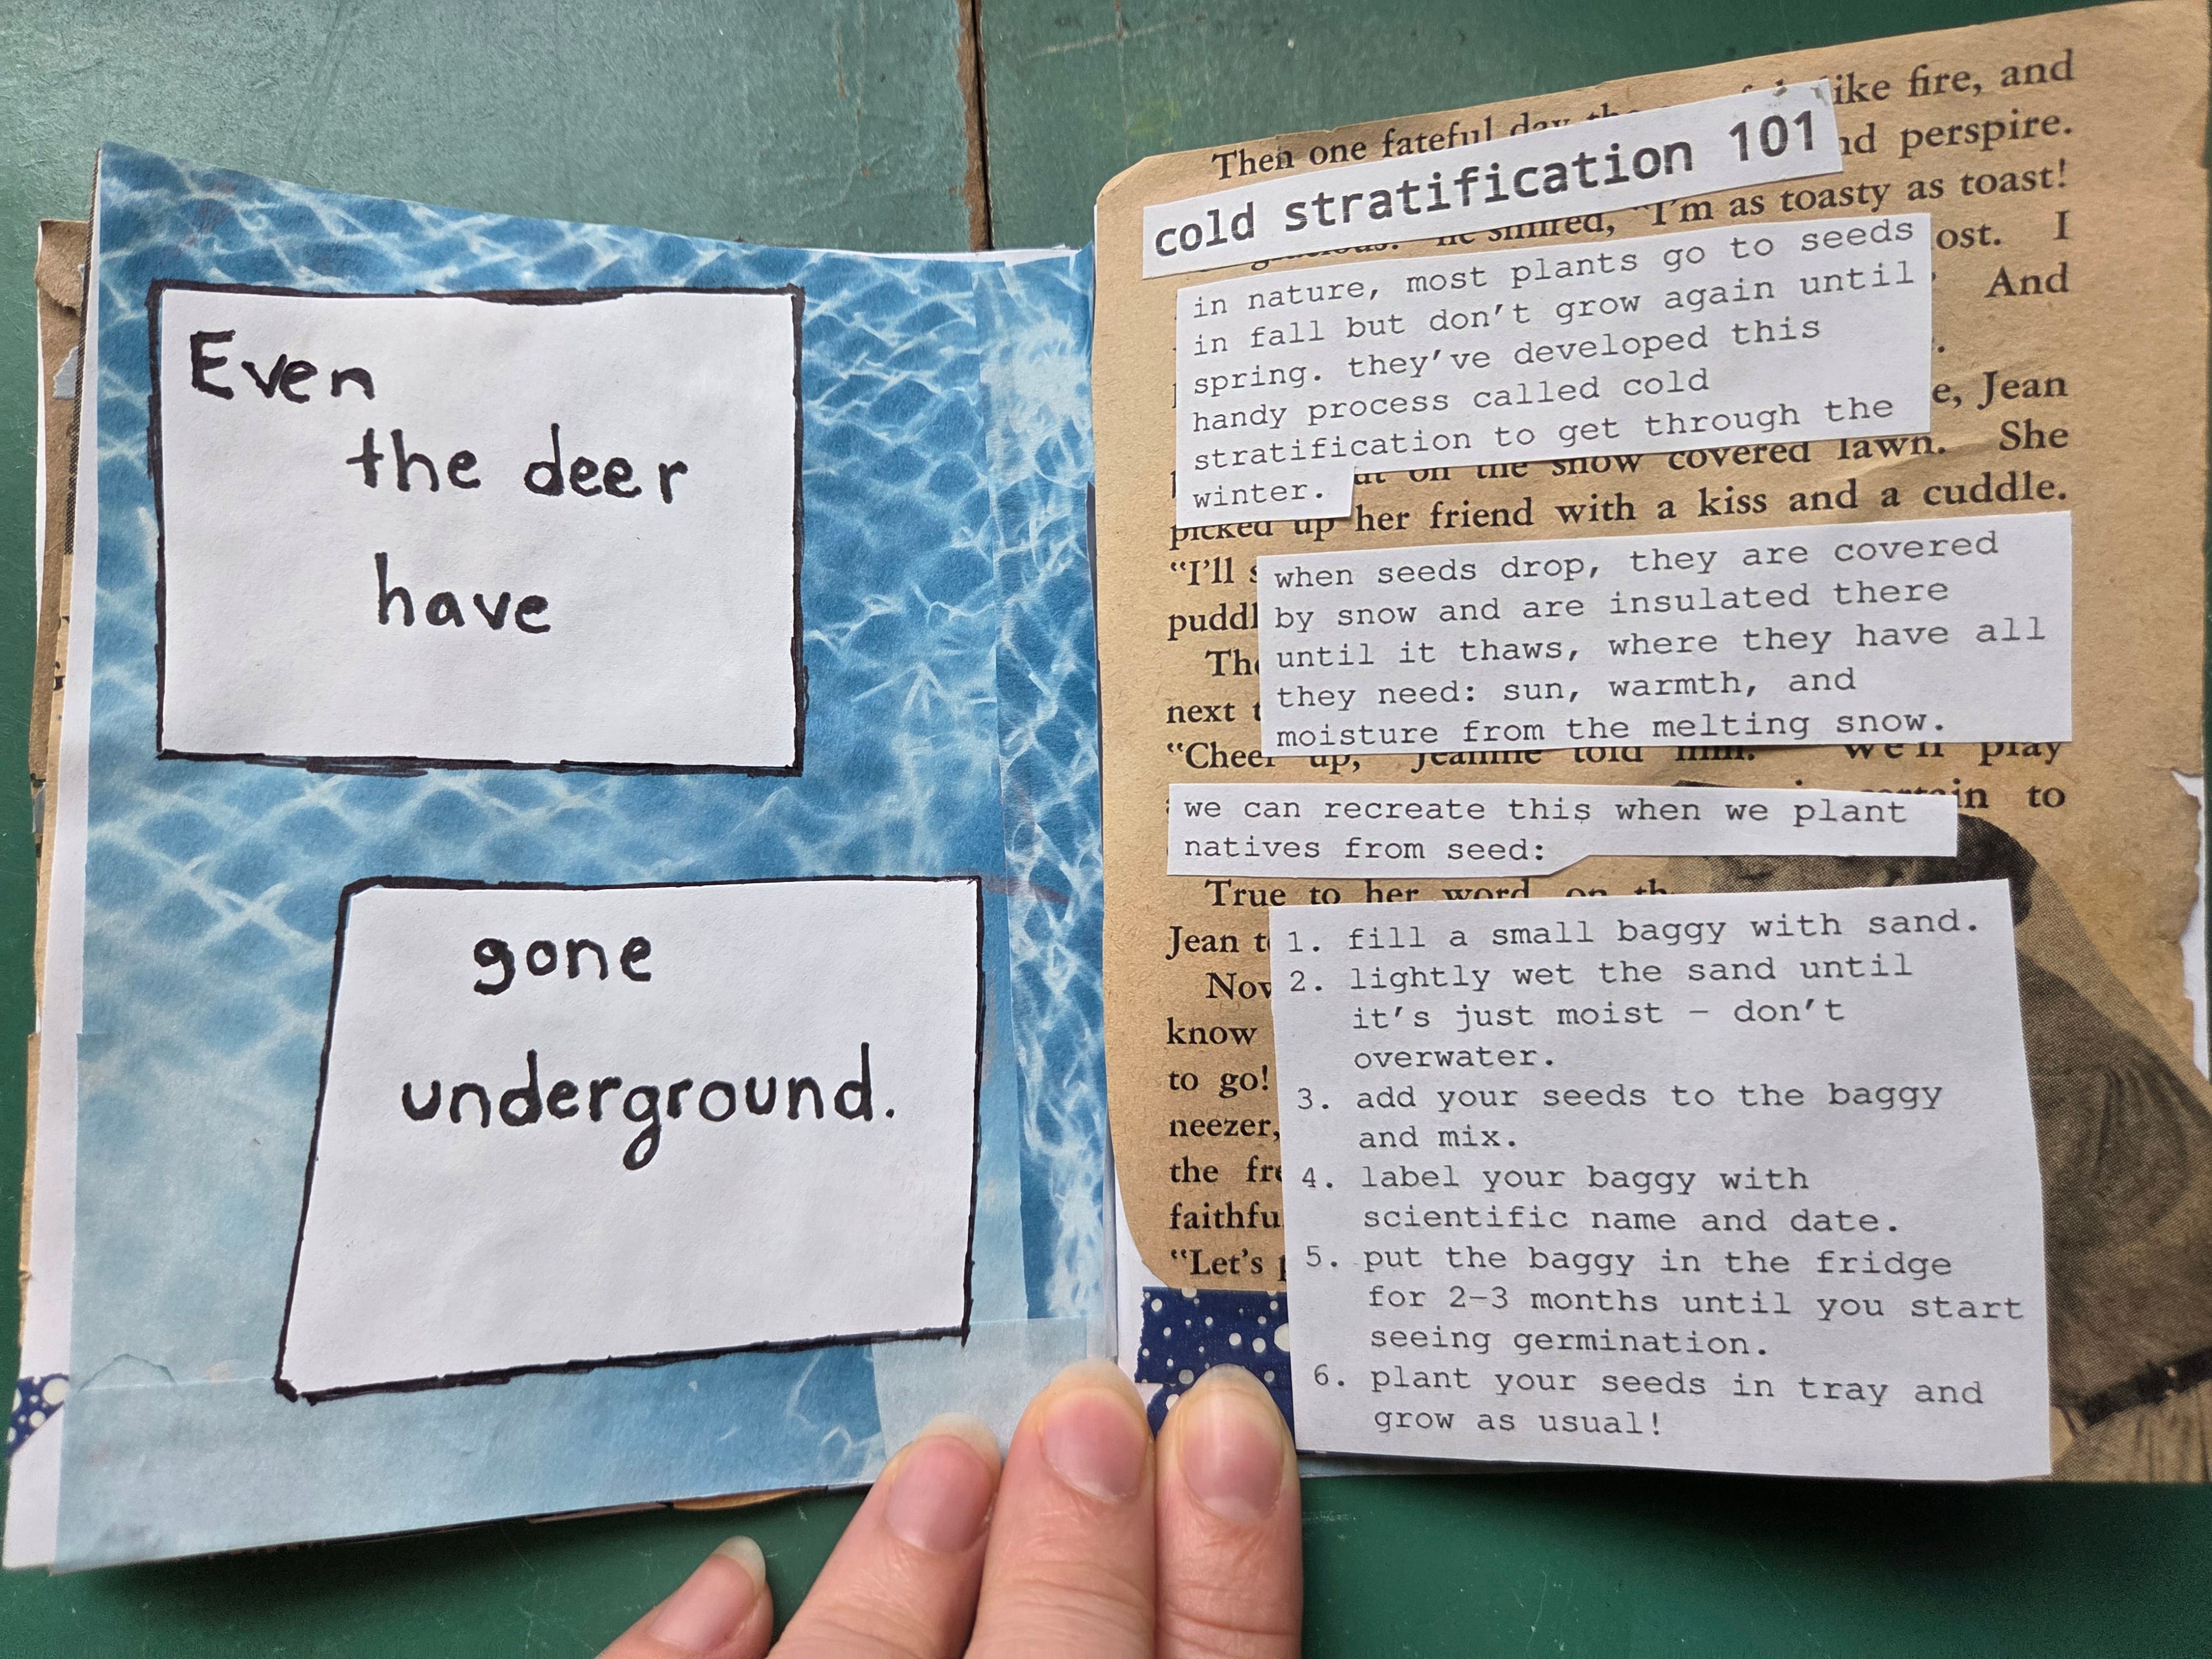 Even
the deer
have
gone
underground.
Then one fateful day ike fire, and
cold stratification 101
nd perspire.
he smiled, "I'm as toasty as toast!
ost. I
And
in nature, most plants go to seeds
in fall but don't grow again until
spring. they've developed this
handy process called cold
stratification to get through the
winter.
e, Jean
on the snow covered lawn. She
picked up her friend with a kiss and a cuddle.
"I'll s
puddl
The
next t
"Cheer up," Jeannie told him. "We'll play
in to
when seeds drop, they are covered
by snow and are insulated there
until it thaws, where they have all
they need: sun, warmth, and
moisture from the melting snow.
we can recreate this when we plant
natives from seed:
True to her word, on th
Jean t
Now
know
to go!
neezer,
the fre
faithfu
"Let's p
1. fill a small baggy with sand.
2. lightly wet the sand until
it's just moist – don't
overwater.
3. add your seeds to the baggy
and mix.
4. label your baggy with
scientific name and date.
5. put the baggy in the fridge
for 2-3 months until you start
seeing germination.
6. plant your seeds in tray and
grow as usual!